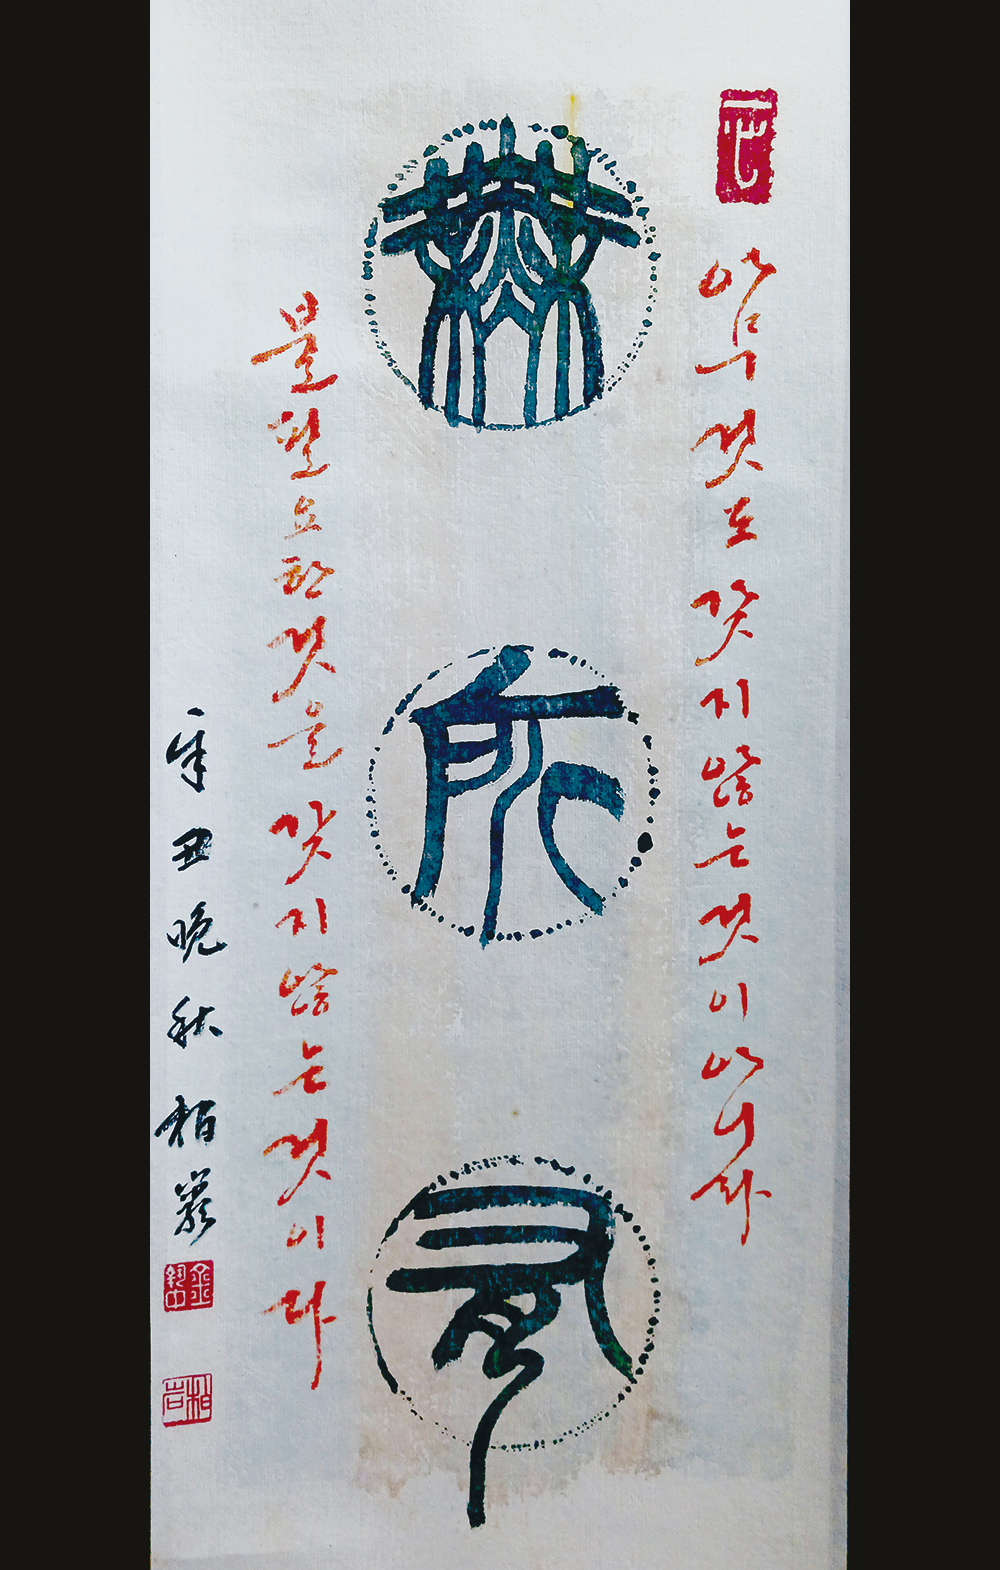 아무것도 갖지 않는 것이 아니라
無所有
불필요한 것을 갖지 않는 것이다
辛丑晩秋 栢巖